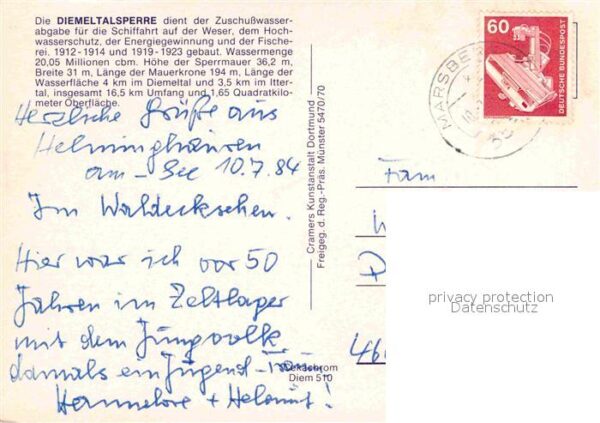 Die DIEMELTALSPERRE dient der Zuschußwasser-
abgabe für die Schiffahrt auf der Weser, dem Hoch-
wasserschutz, der Energiegewinnung und der Fische-
rei. 1912-1914 und 1919-1923 gebaut. Wassermenge
20,05 Millionen cbm. Höhe der Sperrmauer 36,2 m,
Breite 31 m, Länge der Mauerkrone 194 m, Länge der
Wasserfläche 4 km im Diemeltal und 3,5 km im Itter-
tal, insgesamt 16,5 km Umfang und 1,65 Quadratkilo-
meter Oberfläche.
Herzliche Grüße aus
Helminghausen
am - See 10.7.84
Im Waldeckschen.
Hier war ich vor 50
Jahren im Zeltlager
mit dem Jungvolk
damals ein Jugend-
Hannelore + Helmut!
Cramers Kunstanstalt Dortmund
Freigeg. d. Reg.-Präs. Münster 5470/70
Diem 510
60
DEUTSCHE BUNDESPOST
MARSBE
Fam
W
46
privacy protection
Datenschutz